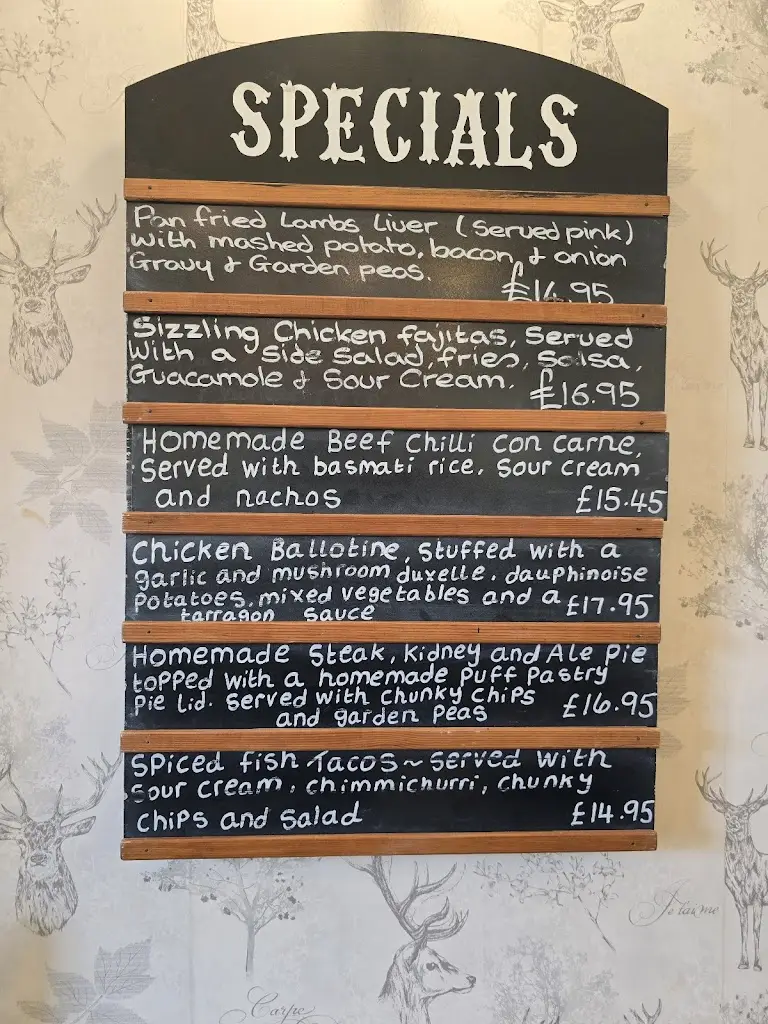 SPECIALS
Pan fried Lambs Liver (Served pink)
with mashed potato, bacon, & onion
Gravy & Garden peas.
£14.95
Sizzling Chicken fajitas, Served
With a Side Salad, fries, Salsa,
Guacamole & Sour Cream. £16.95
Homemade Beef Chilli con carne,
Served with basmati rice, sour cream
and nachos £15.45
Chicken Ballotine, stuffed with a
garlic and mushroom duxelle, dauphinoise
potatoes, mixed vegetables and a £17.95
tarragon sauce
Homemade Steak, kidney and Ale Pie
topped with a homemade puff pastry
pie lid. served with chunky chips £16.95
and garden peas
Spiced fish Tacos ~ served with
sour cream, chimmichurri, chunky
chips and salad £14.95
Je t'aime
Carpe